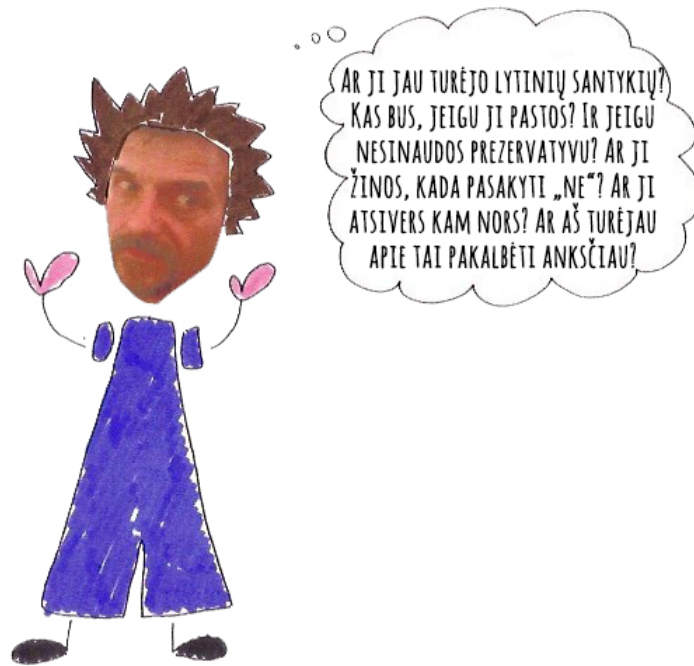 AR JI JAU TURĖJO LYTINIŲ SANTYKIŲ?
KAS BUS, JEIGU JI PASTOS? IR JEIGU
NESINAUDOS PREZERVATYVU? AR JI
ŽINOS, KADA PASAKYTI „NE“? AR JI
ATSIVERS KAM NORS? AR AŠ TURĖJAU
APIE TAI PAKALBĖTI ANKSČIAU?